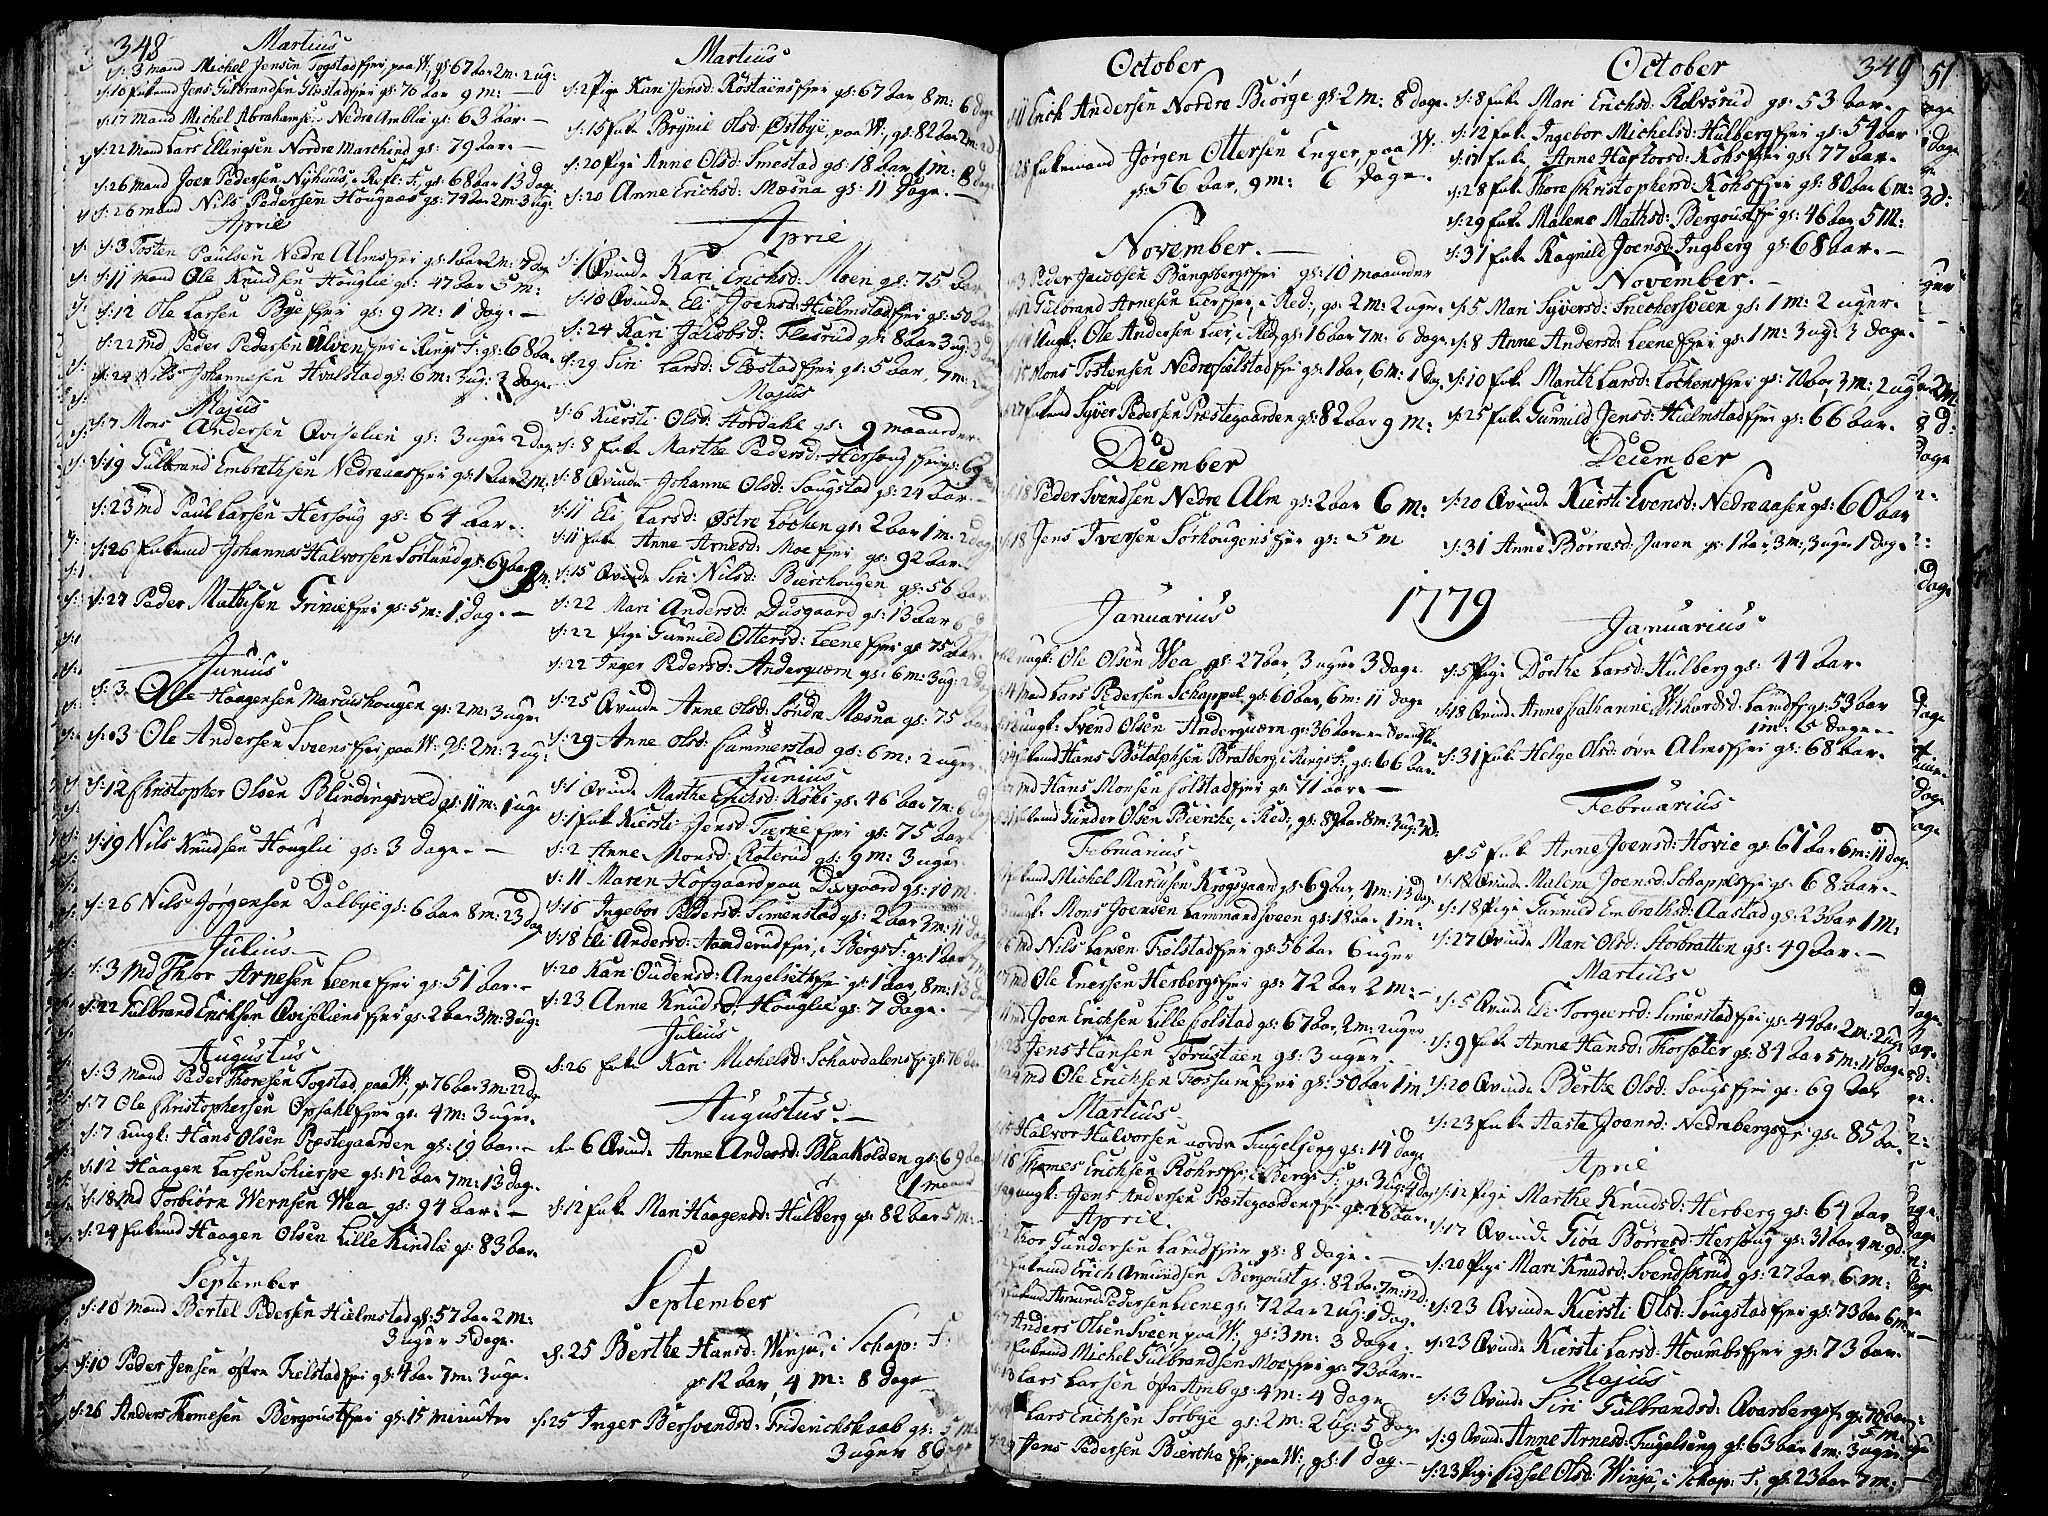 348
Martius
d: 3 mand Michel Jensen Togstadfieri paa W:, gs: 67 aar 2 m: 2 ug:
d: 10 Enkemd Jens Gulbrandsen Glæstadfieri gs: 70 aar 9 m:
d: 17 Mand Michel Abrahamsen Nedre Amblie gs: 63 aar. —
d: 22 Mand Lars Ellingsen Nordre gs: 79 aar. —
d: 26 Mand Joen Pedersen Nyhuus, gs: 68 aar 13 dage
d: 26 mand Nils Pedersen Hougnæs gs: 74 aar 2 m: 3 ug:
April
d: 3 Tosten Paulsen Nedre Almsfieri gs: 1 aar 2 m: 7 dage
d: 11 mand Ole Knudsen Houglie gs: 47 aar 5 m:
d: 12 Ole Larsen Byefieri gs: 9 m: 1 dag. —
d: 22 md Peder Pedersen Ulvenfieri i Rings: F: gs: 68 aar
d: 24 Nils Johannesen Hvelstad gs: 6 m: 3 ug: 3 dage
Majus
d: 7 Mons Andersen Qviselien gs: 3 uger 2 dage
d: 19 Gulbrand Embrethsen Nedreaasfieri gs: 1 aar 2 m:
d: 23 md Paul Larsen Hersoug gs: 64 aar.
d: 26 Enkemd Johannes Halvorsen Sørlund gs: 69 aar 8 m:
d: 27 Peder Mathisen Grimefieri gs: 5 m: 1 dag. —
Junius
d: 3 Ole Haagensen Marcushougen gs: 2 m: 3 uger
d: 3 Ole Andersen Sveensfieri, paa W: gs: 2 m: 3 ug:
d: 12 Christopher Olsen Blindingsvold gs: 11 m: 1 uge
d: 19 Nils Knudsen Houglie gs: 3 dage. —
d: 26 Nils Jørgensen Dalbye gs: 6 aar 8 m: 23 dag
Julius
d: 3 Md Thor Arnesen Leenefieri gs: 51 aar. —
d: 22 Gulbrand Erichsen Qviseliensfieri gs: 2 aar 3 m: 3 ug:
Augustus
d: 3 mand Peder Thoresen Togstad, paa W:, gs: 76 aar 3 m: 22 dg
d: 7 Ole Christophersen Opsahlfieri gs: 4 m: 3 uger.
d: 7 ungk: Hans Olsen Præstegaarden gs: 19 aar. —
d: 12 Haagen Larsen Schierpe gs: 12 aar 7 m: 13 dag.
d: 18 Md Torbiørn Wernsen Wea gs: 94 aar. —
d: 24 Enkemd Haagen Olsen Lille Kindlie gs: 83 aar.
September
d: 10 mand Bertel Pedersen Hielmstad gs: 57 aar 2 m:
3 uger 5 dage.
d: 10 Peder Jensen østre Fielstadfieri gs: 4 aar 7 m: 3 uge.
d: 26 Anders Thomesen Bergoustfieri gs: 15 minuter
Martius
d: 2 Pige Kari Jensd: Røstøensfieri gs: 67 aar 8 m: 6 dage
d: 15 Enke Brynil Olsd: Østbye, paa W:, gs: 82 aar 2 m:
d: 20 Pige Anne Olsd: Smestad gs: 18 aar 1 m: 8 dage
d: 20 Anne Erichsd: Mæsna gs: 11 dage. —
April
d: 1 Qvinde Kari Erichsd: Moen gs: 75 aar
d: 10 Qvinde Eli Joensd: Hielmstadfieri gs: 50 aar
d: 24 Kari Jacobsd: Flasrud gs: 8 aar 3 ug: 3 dage
d: 29 Siri Larsd: Glæstadfieri gs: 5 aar, 7 m:
Majus
d: 6 Kiersti Olsd: Hordahl gs: 9 maaneder
d: 8 Enke Marthe Pedersd: Hersougfieri gs: 69
d: 8 Qvinde Johanne Olsd: Sougstad gs: 24 aar. —
d: 11 Eli Larsd: Østre Løchen gs: 2 aar 1 m: 2 dage
d: 11 Enke Anne Arnesd: Moefieri gs: 92 aar.
d: 15 Qvinde Siri Nilsd: Bierchougen gs: 56 aar.
d: 22 Mari Andersd: Dusgaard gs: 13 aar
d: 22 Pige Gunnild Ottersd: Leenefieri gs: 75 aar.
d: 22 Inger Pedersd: Anderqværn gs: 6 m: 3 ug: 2 dage
d: 25 Qvinde Anne Olsd: Søndre Mæsna gs: 75 aar
d: 29 Anne Olsd: Hammerstad gs: 6 m: 2 uger
Junius
d: 1 Qvinde Marthe Erichsd: Kolsi gs: 46 aar 7 m: 6 dage
d: 1 Enke Kiersti Jensd: Tiernefieri gs: 75 aar
d: 2 Anne Monsd: Roterud gs: 9 m: 3 uger
d: 11 Maren Hofgaard paa Dusgaard gs: 10 m.
d: 16 Ingebor Pedersd: Simenstad gs: 2 aar 3 m: 11 dage
d: 18 Eli Andersd: Aanderudfieri, i Bergs: F: gs: 1 aar 7 m:
d: 20 Kari Oudensd: Angelsethfieri gs: 1 aar, 8 m: 13 dage
d: 23 Anne Knudsd: Houglie gs: 7 dage. —
Julius
d: 26 Enke Kari Michelsd: Schavdalensfieri gs: 76 aar
Augustus. —
d: 6 Qvinde Anne Andersd: Blaakolden gs: 69 aar
1 maaned
d: 12 Enke Mari Haagensd: Hulberg gs: 82 aar 5 m:
September
d: 25 Berthe Hansd: Winju, i Schap: F:
gs: 12 aar, 4 m: 8 dage
d: 25 Inger Bersvendsd: Friderichskaab gs: 5 m:
3 uger 86 dage
October
d: 11 Erich Andersen Nordre Biørge gs: 2 m: 8 dage.
d: 25 Enkemand Jørgen Ottersen Enger, paa W:
gs: 56 aar, 9 m: 6 dage.
November. —
d: 3 Peder Jacobsen Bangsbergsfieri gs: 10 maaneder
d: 12 Gulbrand Arnesen Lierfieri, i Red:, gs: 2 m: 2 uger.
d: 14 Ungk: Ole Andersen Lier, i Red: gs: 16 aar 7 m: 6 dage
d: 15 Mons Tostensen Nedre Fielstadfieri gs: 1 aar, 6 m: 1 dag
d: 27 Enkemd Syver Pedersen Præstegaarden gs: 82 aar 9 m:
December
d: 18 Peder Svendsen Nedre Alm gs: 2 aar 6 m:
d: 18 Jens Iversen Sørhougensfieri gs: 5 m
1779
Januarius
d: 2 ungk: Ole Olsen Wea gs: 27 aar, 3 uger 3 dage
d: 4 mand Lars Pedersen Schappel gs: 60 aar, 6 m: 11 dage
d: 12 ungk: Svend Olsen Anderqværn gs: 36 aar
d: 14 Enkemd Hans Botolphsen Bratberg i Rings: F:, gs: 66 aar.
md Hans Monsen Colstadfieri gs: 71 aar. —
Enkemd Gunder Olsen Biercke, i Red:, gs: 89 aar 8 m: 3 ug: 3 d:
Februarius
Enkemd Michel Marcusen Krogsgaard gs: 69 aar, 4 m: 13 dag
ungk: Mons Joensen Lammandsveen gs: 18 aar 1 m:
d: 6 md Nils Larsen Fielstadfieri gs: 56 aar 6 uger
d: 7 md Ole Enersen Herbergsfieri gs: 72 aar 2 m: —
d: 11 md Joen Erichsen Lille Colstad gs: 67 aar, 2 m: 2 uger
d: 23 Jens Hansen Torustøen gs: 3 uger.
d: 24 md Ole Erichsen Forsumsfieri gs: 50 aar 1 m
Martius
Halvor Halvorsen nordre Fugelseng gs: 14 dage
d: 16 Thomes Erichsen Rohrsfieri, i Bergs: F:, gs: 3 ug: 4 dag
ungk: Jens Andersen Præstegaardenfieri gs: 18 aar.
April.
Thor Gundersen Lundfieri gs: 8 dage. —
Enkemd Erich Amundsen Bergoust gs: 82 aar 7 m: 12 d:
Enkemd Amund Pedersen Leene gs: 72 aar 2 ug: 1 dag.
Anders Olsen Sveen, paa W:, gs: 3 m: 3 dage.
Enkemd Michel Gulbrandsen Moefieri gs: 73 aar. —
d: 13 Lars Larsen østre Amb gs: 4 m: 4 dage
Lars Erichsen Sørbye gs: 2 m: 2 ug: 5 dage
Jens Pedersen Biercke fieri, paa W:, gs: 1 dag. —
October
349
d: 8 Enke Mari Erichsd: Rolvsrud gs: 53 aar.
d: 12 Enke Ingebor Michelsd: Hulbergfieri gs: 54 aar
d: 17 Enke Anne Haftorsd: Kohsfieri gs: 77 aar.
d: 28 Enke Thore Christophersd: Kohsfieri gs: 80 aar 6 m:
d: 29 Enke Malene Mathsd: Bergoustfieri gs: 46 aar, 5 M:
d: 31 Enke Ragnild Joensd: Ingberg gs: 68 aar. —
November. —
d: 5 Mari Syversd: Snechersveen gs: 1 m: 2 uger.
d: 8 Anne Andersd: Leenefieri gs: 1 m: 3 ug: 3 dage.
d: 10 Enke Marith Larsd: Løchensfieri gs: 70 aar, 3 m:, 2 uger
d: 25 Enke Gunnild Jensd: Hielmstadfieri gs: 66 aar.
December
d: 20 Qvinde Kiersti Evensd: Nedreaasen gs: 60 aar
d: 31 Anne Børresd: Juren gs: 1 aar 3 m:, 3 uger 1 dage
Januarius
d: 5 Pige Dorthe Larsd: Hulberg gs: 44 aar.
d: 18 Qvinde Anne Cathanie Withardsd: Lundfieri gs: 53 aar
1 m: 5 dage. —
d: 31 Enke Helge Olsd: øvre Almsfieri gs: 68 aar.
Februarius
d: 5 Enke Anne Joensd: Hovie gs: 61 aar 6 m: 11 dage
d: 12 Qvinde Malene Joensd: Schappelsfieri gs: 68 aar. —
d: 18 Pige Gunnild Embrethsd: Aastad gs: 23 aar 1 m:
d: 27 Qvinde Mari Olsd: Storbratten gs: 49 aar. —
Martius
d: 5 Qvinde Eli Torgersd: Simenstadfieri gs: 44 aar 2 m: 2 uge
d: 9 Enke Anne Hansd: Thorsæter gs: 84 aar 5 m: 11 dage
d: 20 Qvinde Berthe Olsd: Sougsfieri gs: 69 aar
d: 23 Enke Aaste Joensd: Nedrebergsfieri gs: 85 aar
April
d: 12 Pige Marthe Knudsd: Herberg gs: 64 aar
d: 17 Qvinde Giøa Børresd: Hersoug gs: 31 aar, 4 m: 9 d.
d: 20 Pige Mari Knudsd: Svendsrud gs: 27 aar, 6 m:
d: 23 Qvinde Kiersti Olsd: Sougstadfieri gs: 73 aar 6 m:
d: 23 Qvinde Kiersti Larsd: Houmbsfieri gs: 73 aar.
Majus
d: 3 Qvinde Siri Gulbrandsd: Qvarbergsfieri gs: 70 aar
5 m:
d: 9 Qvinde Anne Arnesd: Fugelseng gs: 63 aar 1 m: 3 uger
d: 23 Pige Sidsel Olsd: Winju, i Schap: F:, gs: 23 aar 7 m:
51